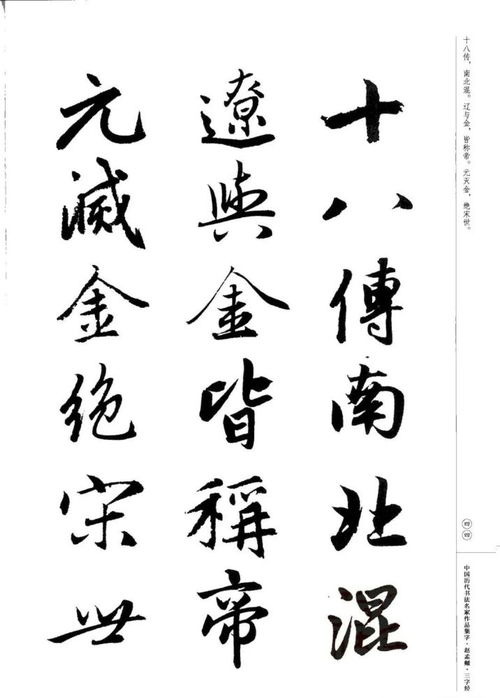 十八傳南北混
遼與金皆稱帝
元滅金絶宋世
十八传，南北混。辽与金，皆称帝。元灭金，绝宋世。
四四
中国历代书法名家作品集字·赵孟頫·三字经